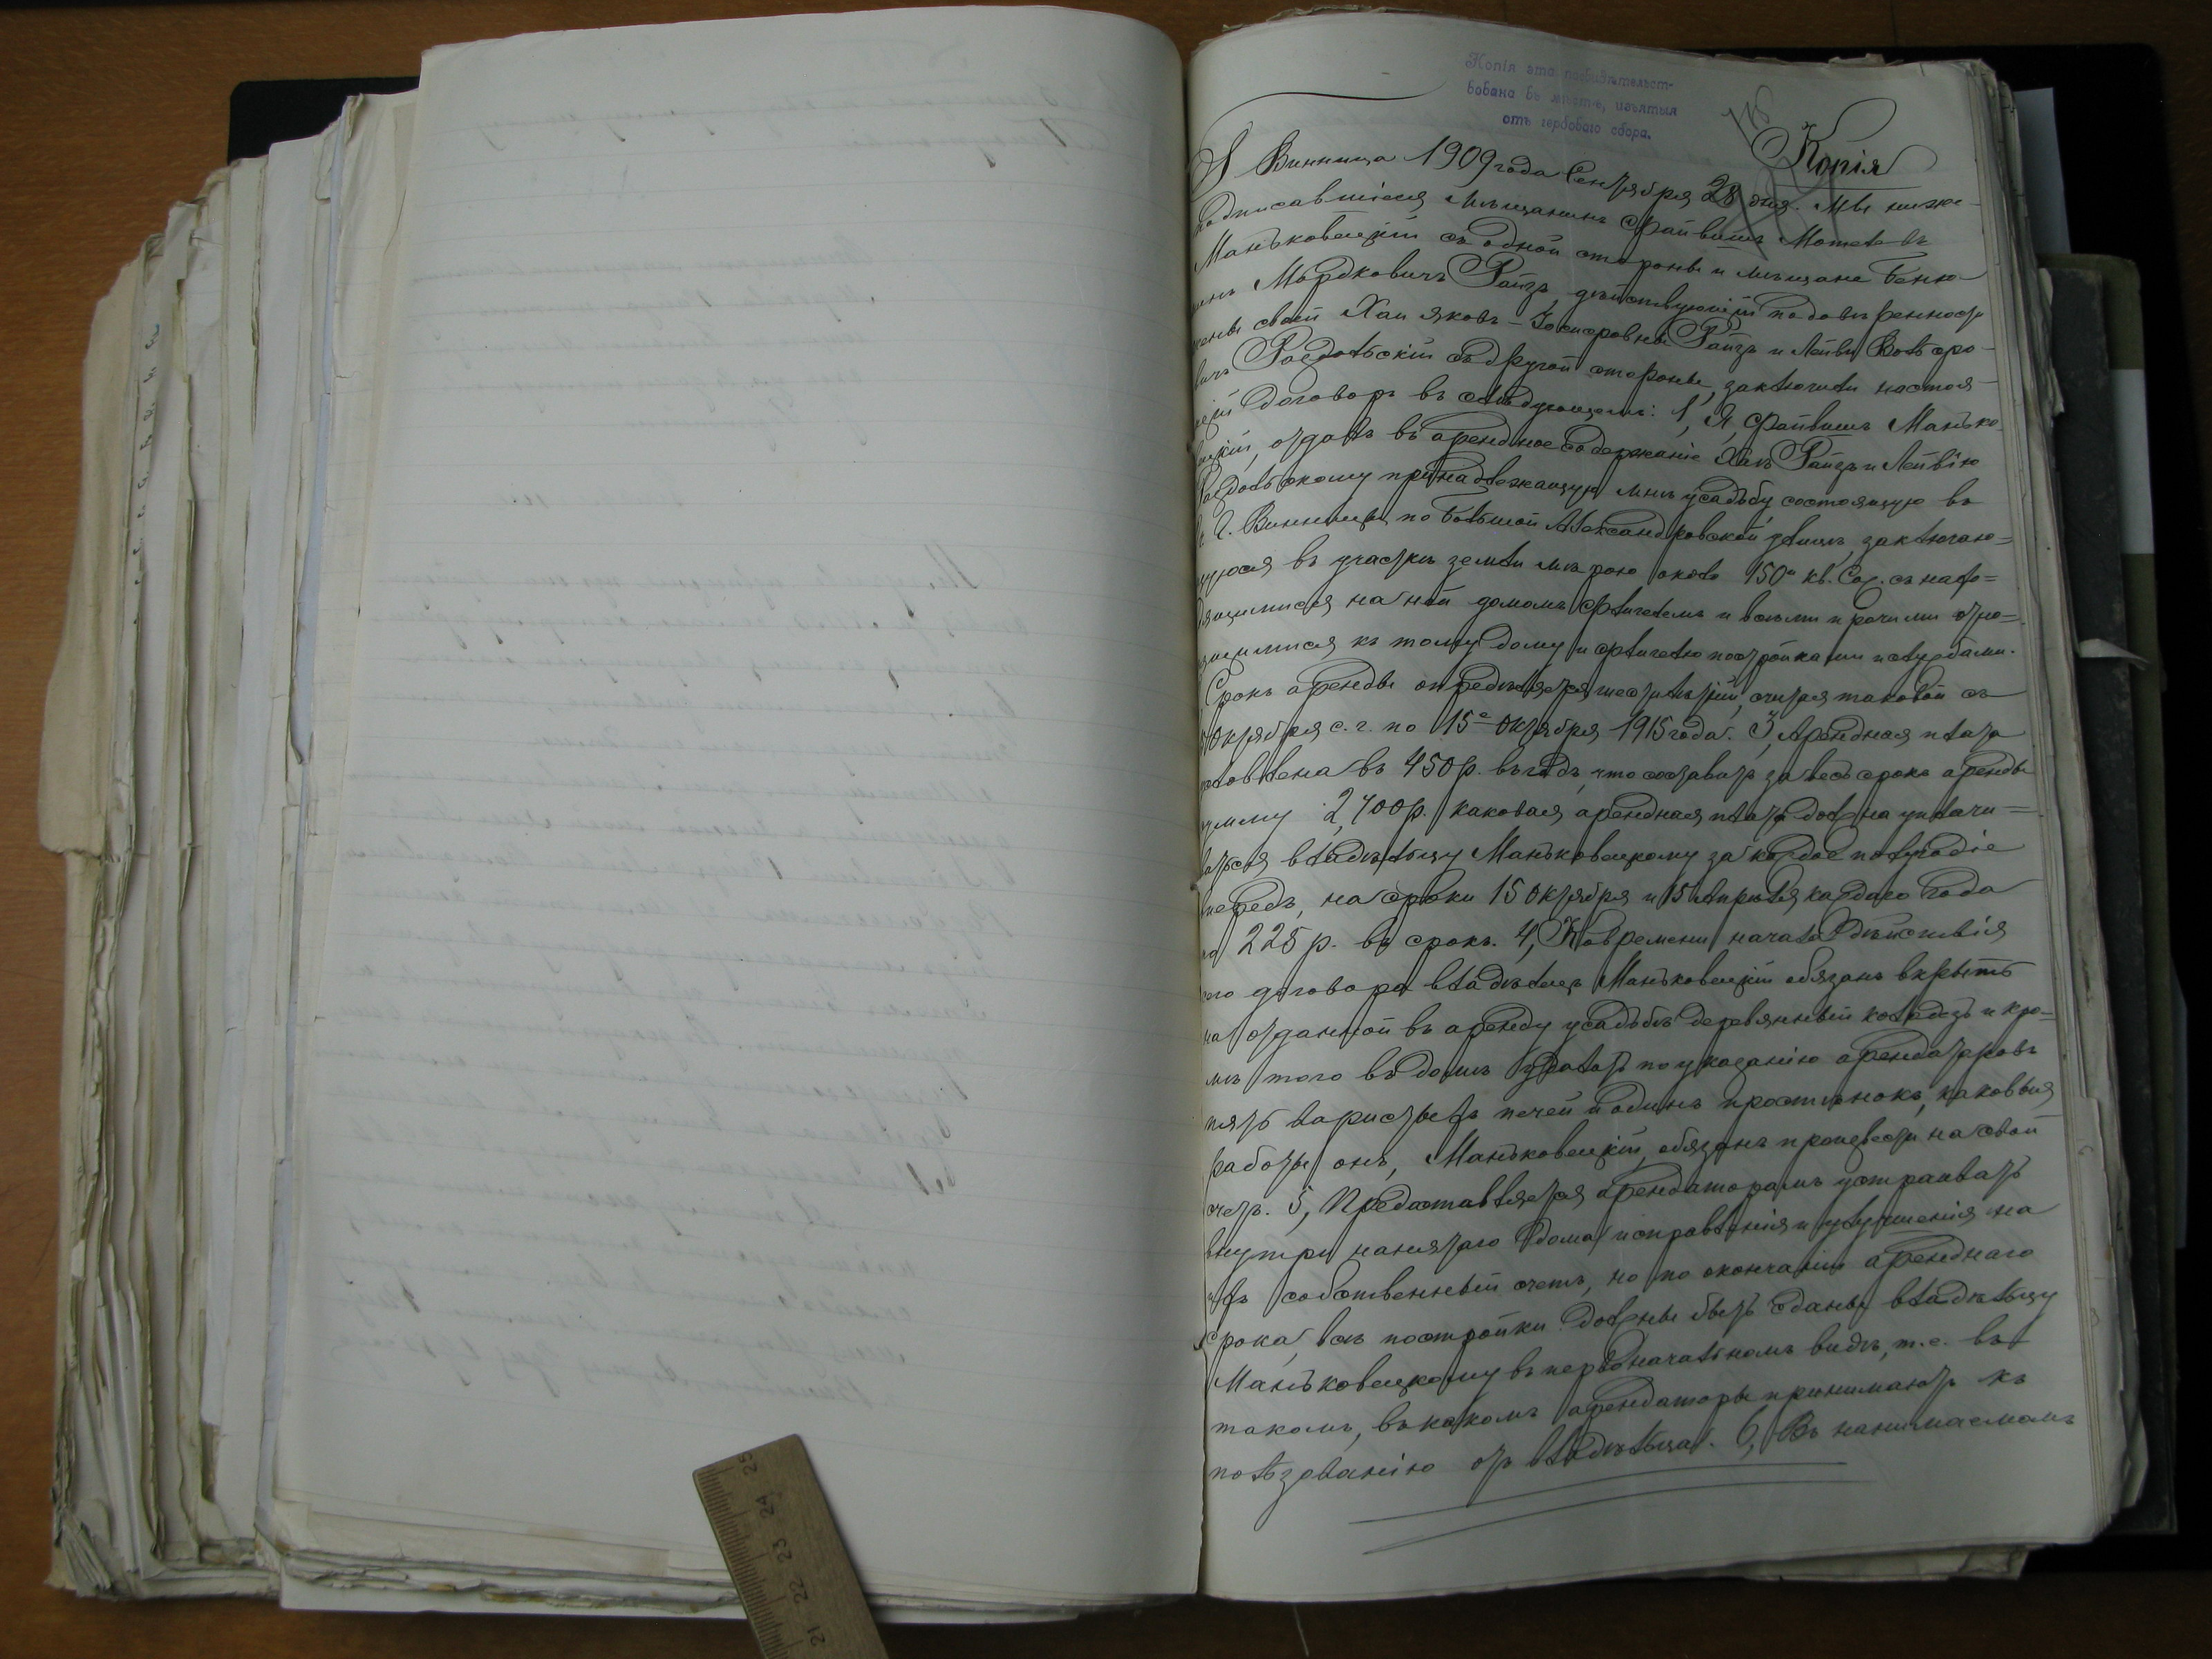 Копія эта засвидѣтельст-
вована въ мѣстѣ, изъятыя
отъ гербоваго сбора.
Копія
Г. Винница 1909 года Сентября 28 дня. Мы ниже-
подписавшіеся мѣщанинъ Файвишъ
Маньковецкій съ одной стороны и мѣщане Бенью-
Мордковичъ Райзъ, дѣйствующій по довѣренности
жены своей Хаи Яковъ-Іосифовны Райзъ и Лейви Вольфо-
вичъ съ другой стороны, заключили настоя-
щій договоръ въ слѣдующемъ: 1, Я, Файвишъ Манько-
вецкій, отдалъ въ арендное содержаніе Хаѣ Райзъ и Лейвію
принадлежащую мнѣ усадьбу, состоящую въ
г. Винницѣ по Большой Александровской улицѣ, заключаю=
щуюся въ участкѣ земли мѣрою около 150 кв. саж. съ нахо=
дящимися на ней домомъ флигелемъ и всѣми прочими отно=
сящимися къ тому дому и флигелю постройками и службами.
Срокъ аренды опредѣляется шестилѣтній, считая таковой съ
Октября с. г. по 15е Октября 1915 года. 3, Арендная плата
условлена въ 450 р. въ годъ, что составитъ за весь срокъ аренды
сумму 2,700 р. каковая арендная плата должна уплачи=
ваться владѣльцу Маньковецкому за каждое полугодіе
впередъ, на сроки 15 Октября и 15 Апрѣля каждаго года
по 225 р. въ срокъ. 4, Ко времени начала дѣйствія
сего договора владѣлецъ Маньковецкій обязанъ вкрыть
на отданной въ аренду усадьбѣ деревянный колодезь и кро-
мѣ того въ домѣ удалить по указанію арендаторовъ
пять варистыхъ печей и одинъ простѣнокъ, каковыя
работы онъ, Маньковецкій, обязанъ произвести на свой
счетъ. 5, Предоставляется арендаторамъ устраивать
внутри нанятаго дома исправленія и улучшенія на
ихъ собственный счетъ, но по окончаніи аренднаго
срока, всѣ постройки должны быть сданы владѣльцу
Маньковецкому въ первоначальномъ видѣ, т. е. въ
такомъ, въ какомъ арендаторы принимаютъ къ
пользованію отъ владѣльца. 6, Въ нанимаемомъ
21 22 23 24 25